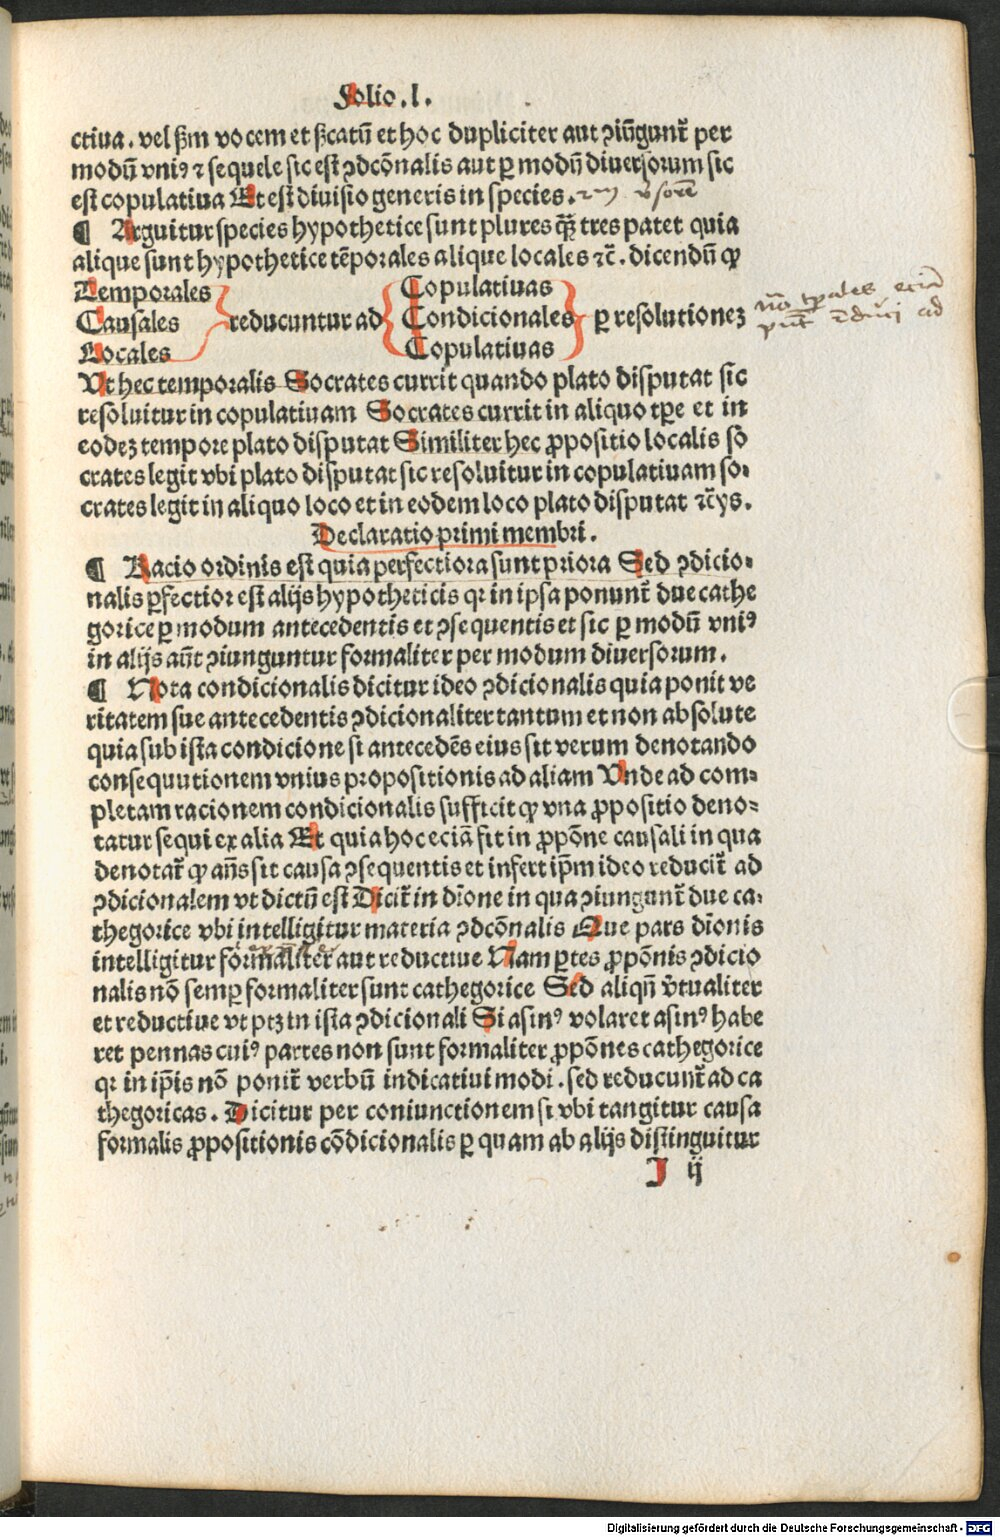 Folio.I.
ctiua. vel ẜm vocem et ẜcatū et hoc dupliciter aut ꝯiūgunt᷑ per
modū vniꝰ ⁊ sequele sic est ꝯdcōnalis aut ꝑ modū diuersorum sic
est copulatiua Et est diuisio generis in species.
¶ Arguitur species hypothetice sunt plures q̄ꝫ tres patet quia
alique sunt hypothetice tēporales alique locales ⁊c̄. dicendū ꝙ
Temporales Copulatiuas
Causales reducuntur ad Condicionales ꝑ resolutioneꝫ
Locales Copulatiuas
Vt hec temporalis Socrates currit quando plato disputat sic
resoluitur in copulatiuam Socrates currit in aliquo tꝑe et in
eodeꝫ tempore plato disputat Similiter hec ꝓpositio localis so
crates legit vbi plato disputat sic resoluitur in copulatiuam so-
crates legit in aliquo loco et in eodem loco plato disputat ⁊c̄ys.
Declaratio primi membri.
¶ Racio ordinis est quia perfectiora sunt priora Sed ꝯdicio-
nalis ꝑfectior est alijs hypotheticis qr in ipsa ponunt᷑ due cathe
gorice ꝑ modum antecedentis et ꝯsequentis et sic ꝑ modū vniꝰ
in alijs aūt ꝯiunguntur formaliter per modum diuersorum.
¶ Nota condicionalis dicitur ideo ꝯdicionalis quia ponit ve
ritatem sue antecedentis ꝯdicionaliter tantum et non absolute
quia sub ista condicione si antecedēs eius sit verum denotando
consequutionem vnius propositionis ad aliam Vnde ad com-
pletam racionem condicionalis sufficit ꝙ vna ꝓpositio deno-
tatur sequi ex alia Et quia hoc eciā fit in ꝓpōne causali in qua
denotat᷑ ꝙ an̄s sit causa ꝯsequentis et infert ip̄m ideo reducit᷑ ad
ꝯdicionalem vt dictū est Dicit᷑ in dīone in qua ꝯiungunt᷑ due ca-
thegorice vbi intelligitur materia ꝯdcōnalis Que pars dīonis
intelligitur formaliter aut reductiue Nam ꝑtes ꝓpōnis ꝯdicio
nalis nō semꝑ formaliter sunt cathegorice Sed aliqn̄ v̄tualiter
et reductiue vt ptꝫ in ista ꝯdicionali Si asinꝰ volaret asinꝰ habe
ret pennas cuiꝰ partes non sunt formaliter ꝓpōnes cathegorice
qr in ip̄is nō ponit᷑ verbū indicatiui modi. sed reducunt᷑ ad ca
thegoricas. Dicitur per coniunctionem si vbi tangitur causa
formalis ꝓpositionis cōdicionalis ꝑ quam ab alijs distinguitur
I ij
Digitalisierung gefördert durch die Deutsche Forschungsgemeinschaft - DFG